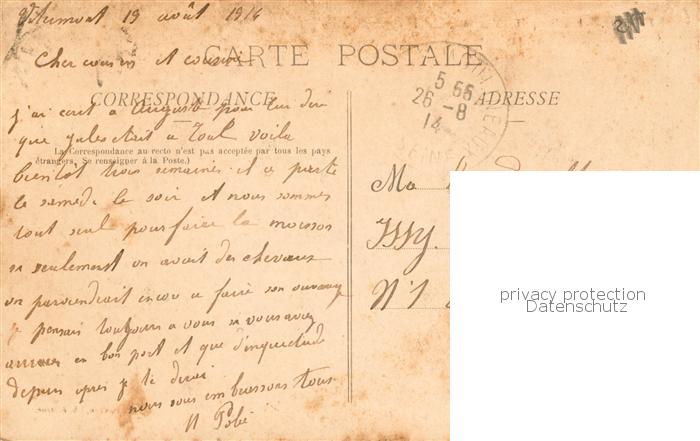 19 août 1914
CARTE POSTALE
Cher cousin et cousine
CORRESPONDANCE
ADRESSE
5 66
26 -8
14
j'ai écrit a August pour lui dire
que jules était a Toul voila
La Correspondance au recto n'est pas acceptée par tous les pays
étrangers. Se renseigner à la Poste.)
bientot trois semaines il a parti
le samedi le soir et nous sommes
tout seul pour faire la moisson
si seulement on avait des chevaux
on parviendrait encor a faire son ouvrage
je pensais toujours a vous si vous avez
arriver en bon port et que d'inquietude
depuis
nous vous embrassons tous
Issy.
N° 1
privacy protection
Datenschutz